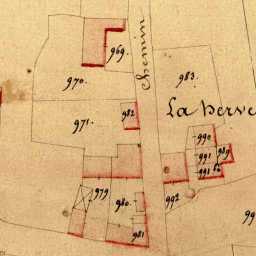 969.
Chemin
970.
983.
971.
982
La herve
990
991
979
980.
992
981